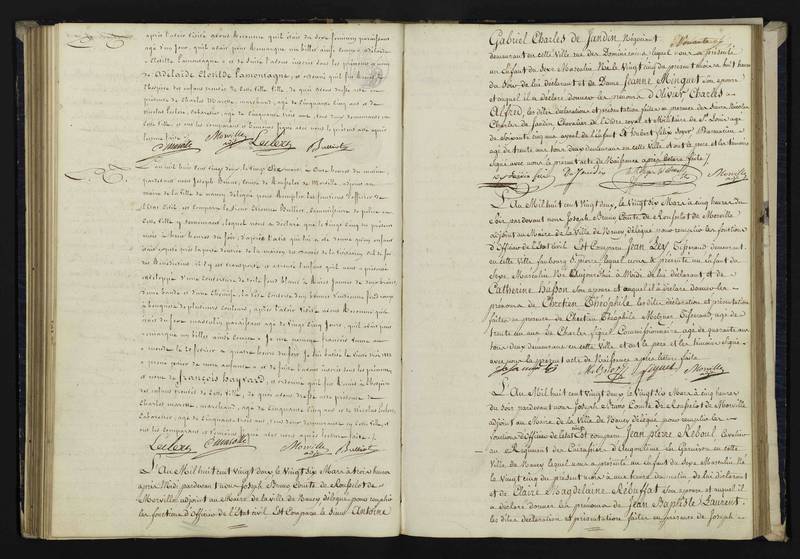 après l'avoir visité avons reconnu qu'il était du sexe féminin paraissant
âgé d'un jour, qu'il avait pour remarque un billet ainsi conçu « adelaide
Clotilde lamontagne » et de suite l'avons inscrit sous les prénoms et nom
de Adelaïde Clotilde Lamontagne, et ordonné qu'il fut remis à
l'hospice des enfans trouvés de cette ville, de quoi avons dressé acte en
présence de Charles Mariotte, marchand, âgé de Cinquante cinq ans et de
Nicolas Leclerc, Cabaretier, âgé de Cinquante trois ans, tous deux demeurants en
cette Ville et ont les comparant et témoins signé avec nous le présent acte après
lecture faite
Mariotte Morville adjt Leclerc
L'an mil huit cent vingt deux, le Vingt Six mars à onze heures du matin,
pardevant nous Joseph Bruno, Comte de Rousselot de Morville, adjoint au
maire de la Ville de Nancy délégué pour remplir les fonctions d'officier de
l'Etat Civil, est comparu le Sieur Etienne Commissaire de police en
cette Ville y demeurant, lequel nous a déclaré que le vingt cinq du présent
mois à heures du soir, d'après l'avis qui lui a été donné qu'un enfant
était exposé près la porte d'entrée de la maison
des Bénédictins, il s'y est transporté et a trouvé l'enfant qu'il nous a présenté
enveloppé d'une couverture de toile fond blanc à
d'une bande et d'une chemise, la tête couverte d'un bonnet d'indienne
à bouquets de plusieurs couleurs, après l'avoir visité avons reconnu qu'il
était du sexe masculin paraissant âgé de Vingt Cinq jours, qu'il avait pour
remarque un billet ainsi conçu « Je me nomme François venu au
monde le 28 février à quatre heures du soir
et de suite l'avons inscrit sous les prénoms,
et nom de François hayvard, et ordonné qu'il fut remis à l'hospice
des enfans trouvés de cette Ville, de quoi avons dressé acte présence de
Charles Mariotte, marchand, âgé de Cinquante Cinq ans et de Nicolas Leclerc,
Cabaretier, âgé de Cinquante trois ans, tous deux demeurants en cette Ville, et
ont les comparant et témoins signé avec nous après lecture faite
Leclerc Mariotte Morville adjt
L'An Mil huit cent Vingt deux le Vingt Six Mars à trois heures
après Midi pardevant nous Joseph Bruno Comte de Rousselot de
Morville adjoint au Maire de la Ville de Nancy délégué pour remplir
les fonctions d'Officier de l'Etat civil Est Comparu le Sieur Antoine
Gabriel Charles de Jandin Négociant
demeurant en cette Ville rue des Dominicains lequel nous a présenté
un Enfant du Sexe Masculin Né le Vingt cinq du présent Mois à huit heures
du Soir de lui déclarant et de Dame Jeanne Minguet Son épouse
et auquel il a déclaré donner les prénoms d'Olivier Charles
Alfred, les dites déclaration et présentation faites en présence des Sieurs Nicolas
Charles de Jandin Chevalier de l'Ordre royal et Militaire de St Louis âgé
de Soixante cinq ans ayeul de l'Enfant Et
âgé de trente ans tous deux demeurants en cette Ville et ont le père et les témoins
Signé avec nous le présent acte de Naissance après lecture faite
De Jandin Morville adjt
L'An Mil huit cent Vingt deux, le Vingt Six Mars à cinq heures du
Soir pardevant nous Joseph Bruno Comte de Rousselot de Morville
adjoint au Maire de la Ville de Nancy délégué pour remplir les fonctions
d'Officier de l'Etat civil Est Comparu Jean Ley Tisserand demeurant
en cette Ville faubourg St pierre lequel nous a présenté un Enfant du
Sexe Masculin Né Aujourd'hui à Midi de lui déclarant et de
Catherine Hasson Son épouse et auquel il a déclaré donner les
prénoms de Chrétien Théophile les dites déclaration et présentation
faites en présence de Chrétien Théophile Metzner Tisserand, âgé de
trente un ans et de Charles Piquet Commissionnaire âgé de quarante ans
tous deux demeurants en cette Ville et ont le père et les témoins Signé
avec nous le présent acte de Naissance après lecture faite
Metzner Piquet Morville adjt
L'An Mil huit cent Vingt deux le Vingt Six Mars à cinq heures
du Soir pardevant nous Joseph Bruno Comte de Rousselot de Morville
adjoint au Maire de la Ville de Nancy délégué pour remplir les
fonctions d'Officier de l'Etat civil Est comparu Jean pierre Reboul Cavalier
au Régiment des Cuirassiers d'Angoulême En Garnison en cette
Ville de Nancy lequel nous a présenté un Enfant du Sexe Masculin Né
le Vingt cinq du présent Mois à une heure du matin de lui déclarant
et de Claire Magdelaine Rebuffat Son épouse et auquel il
a déclaré donner les prénoms de Jean Baptiste Laurent
les dites déclaration et présentation faites en présence de Joseph